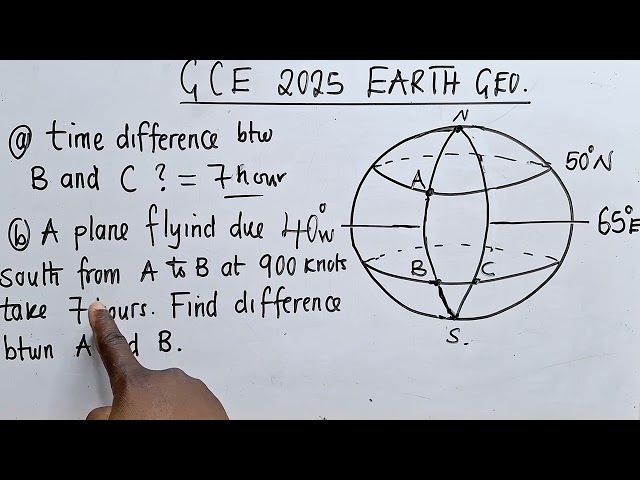 GCE 2025 EARTH GEO.
(a) time difference btw
B and C ? = 7 hour
(b) A plane flyind due
south from A to B at 900 knots
take 7 hours. Find difference
btwn A and B.
N
50°N
A
40°W
65°E
B C
S.